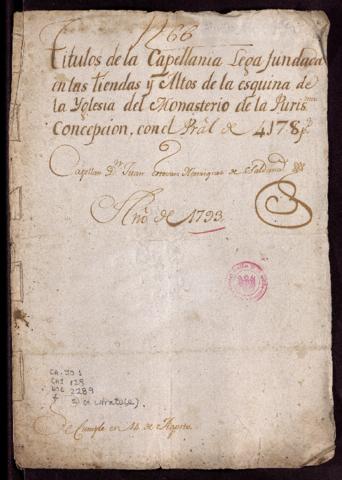 1766
Titulos de la Capellania Lega fundada
en las tiendas y Altos de la esquina de
la Yglesia del Monasterio de la Puris.ma
Concepcion, con el Pràl de 4178 p.s
Capellan Dn Juan Henriquez de Saldaña
Año de 1793.
CA-JO 1
CAJ 128
DOC 2289
f
Se Cumple en 14 de Agosto.